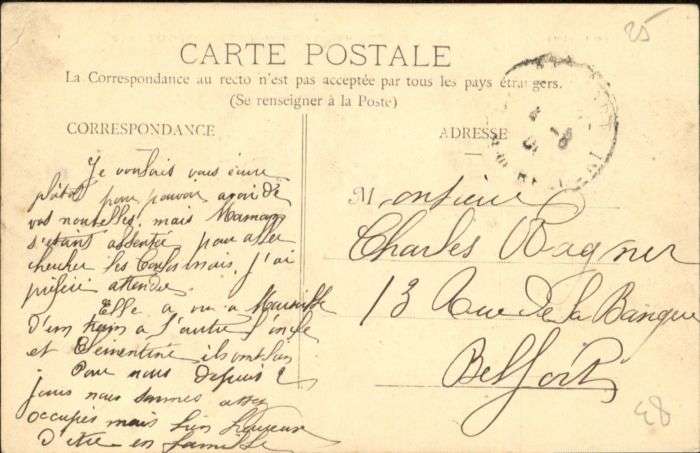 25
CARTE POSTALE
La Correspondance au recto n'est pas acceptée par tous les pays étrangers.
(Se renseigner à la Poste)
CORRESPONDANCE
ADRESSE
Je voulais vous écrire
plutot pour pouvoir avoir de
vos nouvelles, mais Maman
s'étant absentée pour aller
chercher les j'ai
préféré attendre.
Elle a vu a Marseille
d'un train a l'autre l'oncle
et Clémentine ils ont
Pour nous depuis 2
jours nous sommes assez
occupés mais bien heureux
d'être en famille
Monsieur
Charles Wagner
13 Rue de la Banque
Belfort
E8